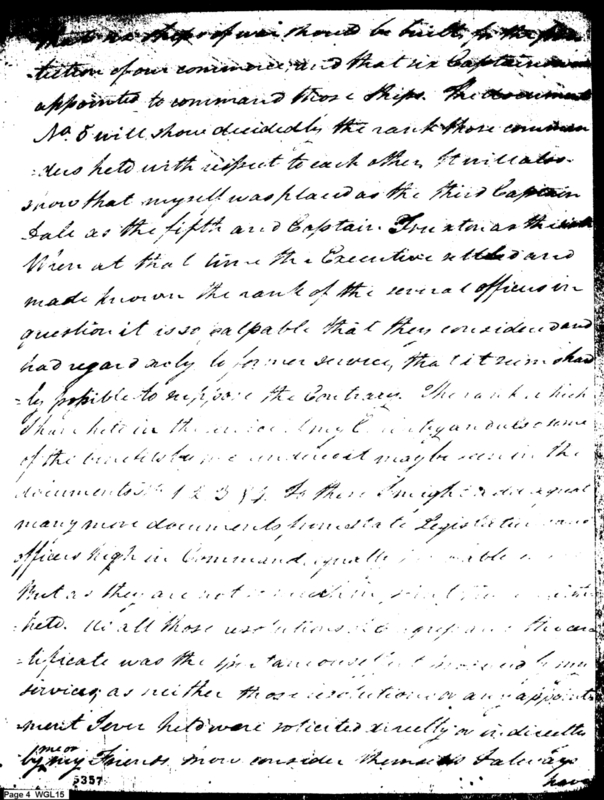 that six ships of war should be built for the pro-
tection of our commerce, and that six Captains were
appointed to command those Ships. The document
No. 5 will show decidedly the rank those comman
=ders held with respect to each other, It will also
show that myself was placed as the third Captain
Dale as the fifth and Captain Truxton as the sixth
When at that time the Executive settled and
made known the rank of the several officers in
question it is so palpable that they considered and
had regard only to former services, that it seems hard
=ly possible to suppose the Contrary. The rank which
I have held in the service of my Country and also some
of the may be seen in the
documents No. 1 2 3 & 4. To these I might add equal
many more documents, from State Legislatures and
officers high in Command, equally
But as they are not
=held. all those resolutions of Congress and the cer
=tificate was the spontaneous my
services, as neither those resolutions or any appoint
ment I ever held were solicited directly or indirectly
by me or my Friends. now consider I always
have
5357
Page 4 WGL15